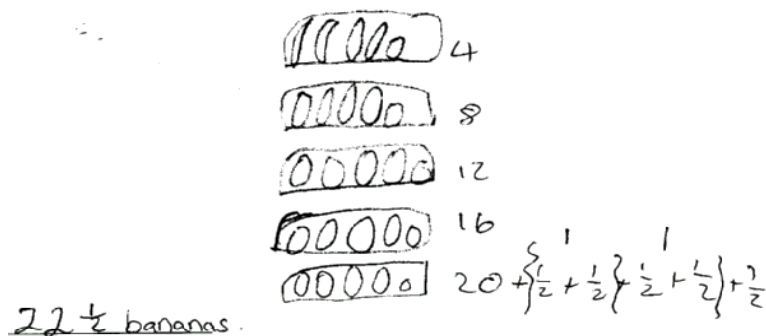 4
8
12
16
1 1
20 + {1/2 + 1/2} + {1/2 + 1/2} + 1/2
22 1/2 bananas.